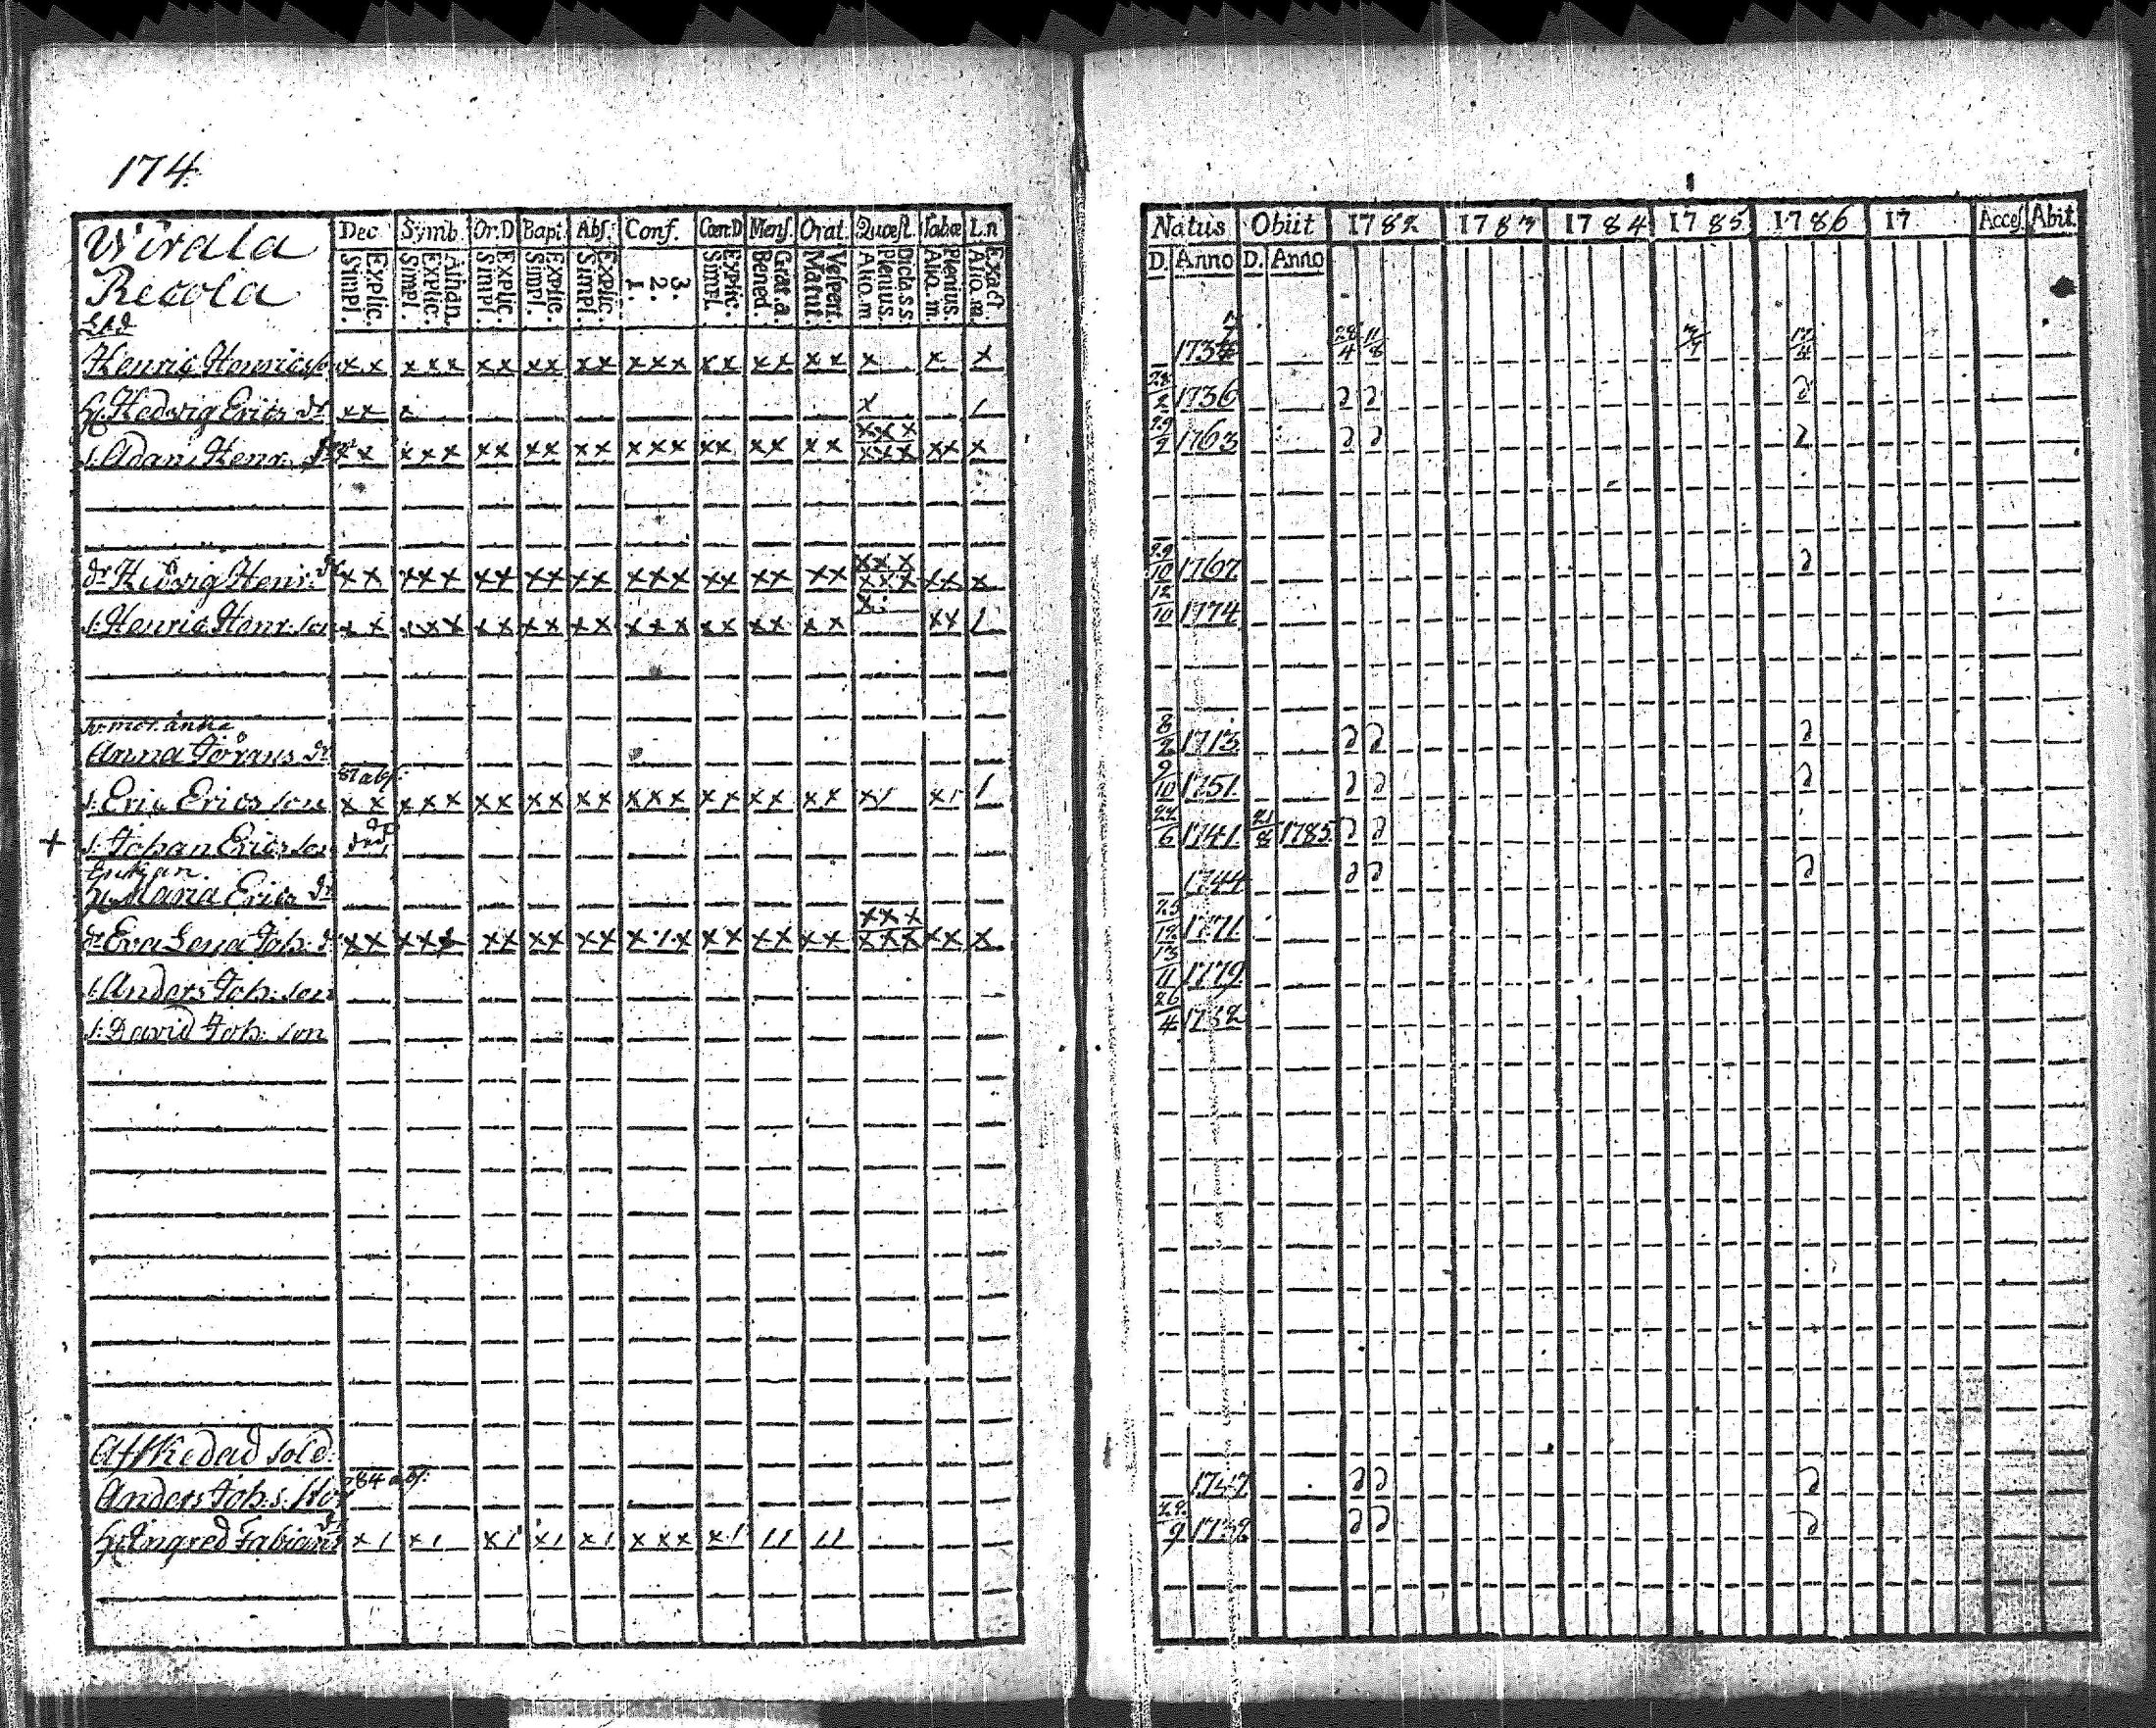 174.
Wirala Dec. Symb. Or.D Bapt. Abs. Conf. Cœn.D Mens. Orat. Quæst. Tabæ L.n
Recola Explic. Simpl. Athan. Explic. Simpl. Explic. Simpl. Explic. Simpl. Explic. Simpl. 3. 2. 1. Explic. Simpl. Grat. a. Bened. Vespert. Matut. Dicta s.s. Plenius. Aliq. m. Plenius. Aliq. m. Exact. Aliq. m.
Henric Henricsso xx xxx xx xx xx xxx xx xx xx x x x
H. Hedvig Erics dr xx x x /
s. Adam Henr. xx xxx xx xx xx xxx xx xx xx xxx xxx xx x
dr Hedvig Henr. dr xx xxx xx xx xx xxx xx xx xx xxx xxx xx x
s. Henric Henr. son xx xxx xx xx xx xxx xx xx xx x xx /
Anna Görans dr
s. Eric Ericsson xx xxx xx xx xx xxx xx xx xx x/ x/ /
+ s. Johan Ericsson
Enkan.
H. Maria Erics dr
dr Eva Lena Joh. dr xx xxx xx xx xx x/x xx xx xx xxx xxx xx x
s. Anders Joh. son
s. David Joh. son
Afskedad sold.
784 abs.
Anders Johs.
H. Ingred Fabians dr x/ x/ x/ x/ x/ xxx x/ // //
Natus Obiit 1782 1783 1784 1785 1786 17 Acces. Abit.
D. Anno D. Anno
173 28/4 11/8 17/4
28/2 1736
29/9 1763
29/10 1767
12/10 1774
8/2 1713
9/10 1751
24/6 1741 21/8 1785
1744
25/12 1771
13/11 1779
26/4 1782
1747
29/9 1732